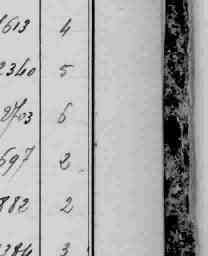 1613 4
2340 5
2703 6
697 2
882 2
384 3